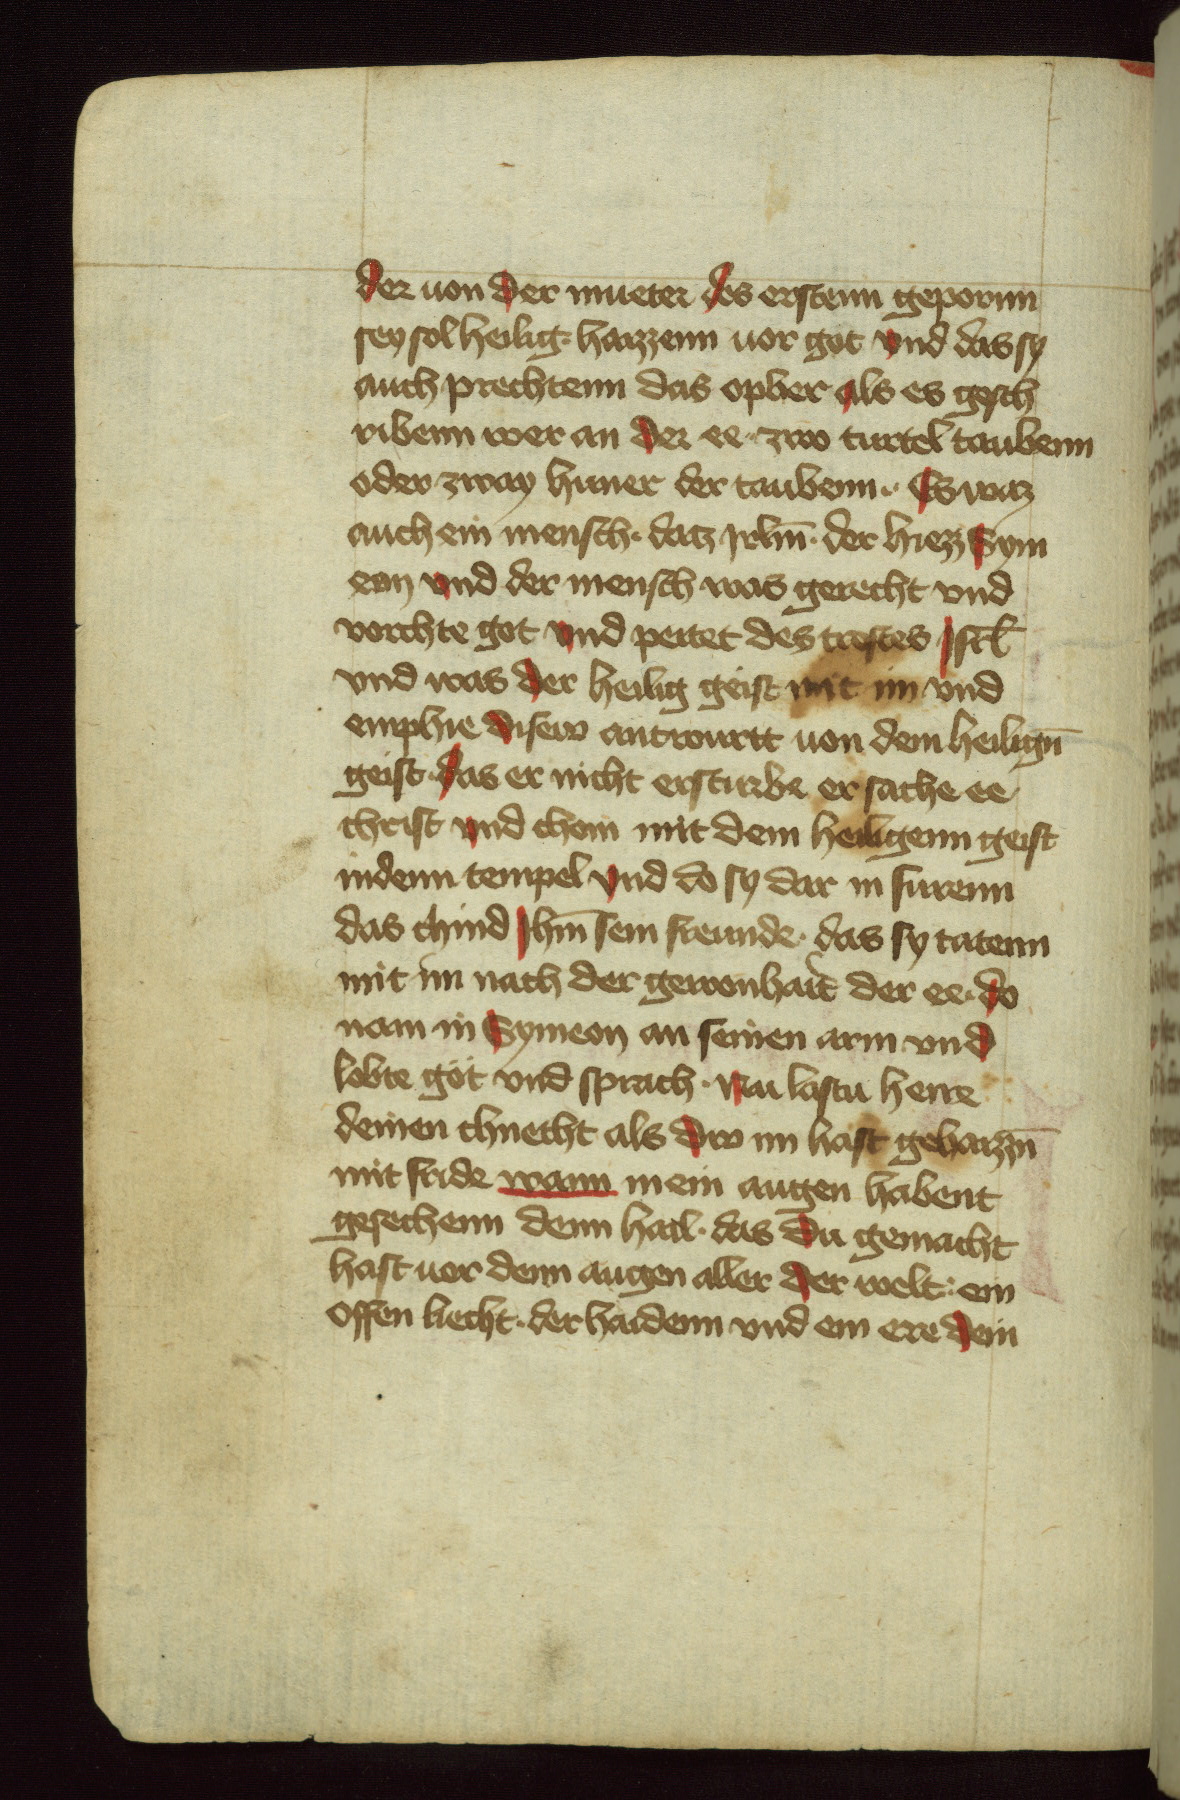 der von der mueter des erstenn gepornn
sey sol heilig · hazzenn vor got vnd das sy
auch prechtenn das opher als es gesch
ribenn wer an der ee · zwo turtel taubenn
oder zway huner der taubenn · Es waz
auch ein mensch · datz Jrlm̄ · der hiezz Sym
eon vnd der mensch was gerecht vnd
vorchte got vnd peitet des trostes Jsrl̄
vnd was der heilig geist mit im vnd
emphie disew antwurtt von dem heilign̄
geist · das er nicht ersturbe er sache ee
christ vnd chom mit dem heiligenn geist
in denn tempel vnd do sy dar in furenn
das chind Jhm̄ sein freunde · das sy tatenn
mit im nach der gewonhait der ee · do
nam in Symeon an seinen arm vnd
lobte got vnd sprach · Nu lastu herre
deinen chnecht als dw im hast gehazzn̄
mit fride wann mein augen habent
gesechenn denn hail · das du gemacht
hast vor denn augen aller der welt · ein
offen liecht · der haidenn vnd ein ere dein